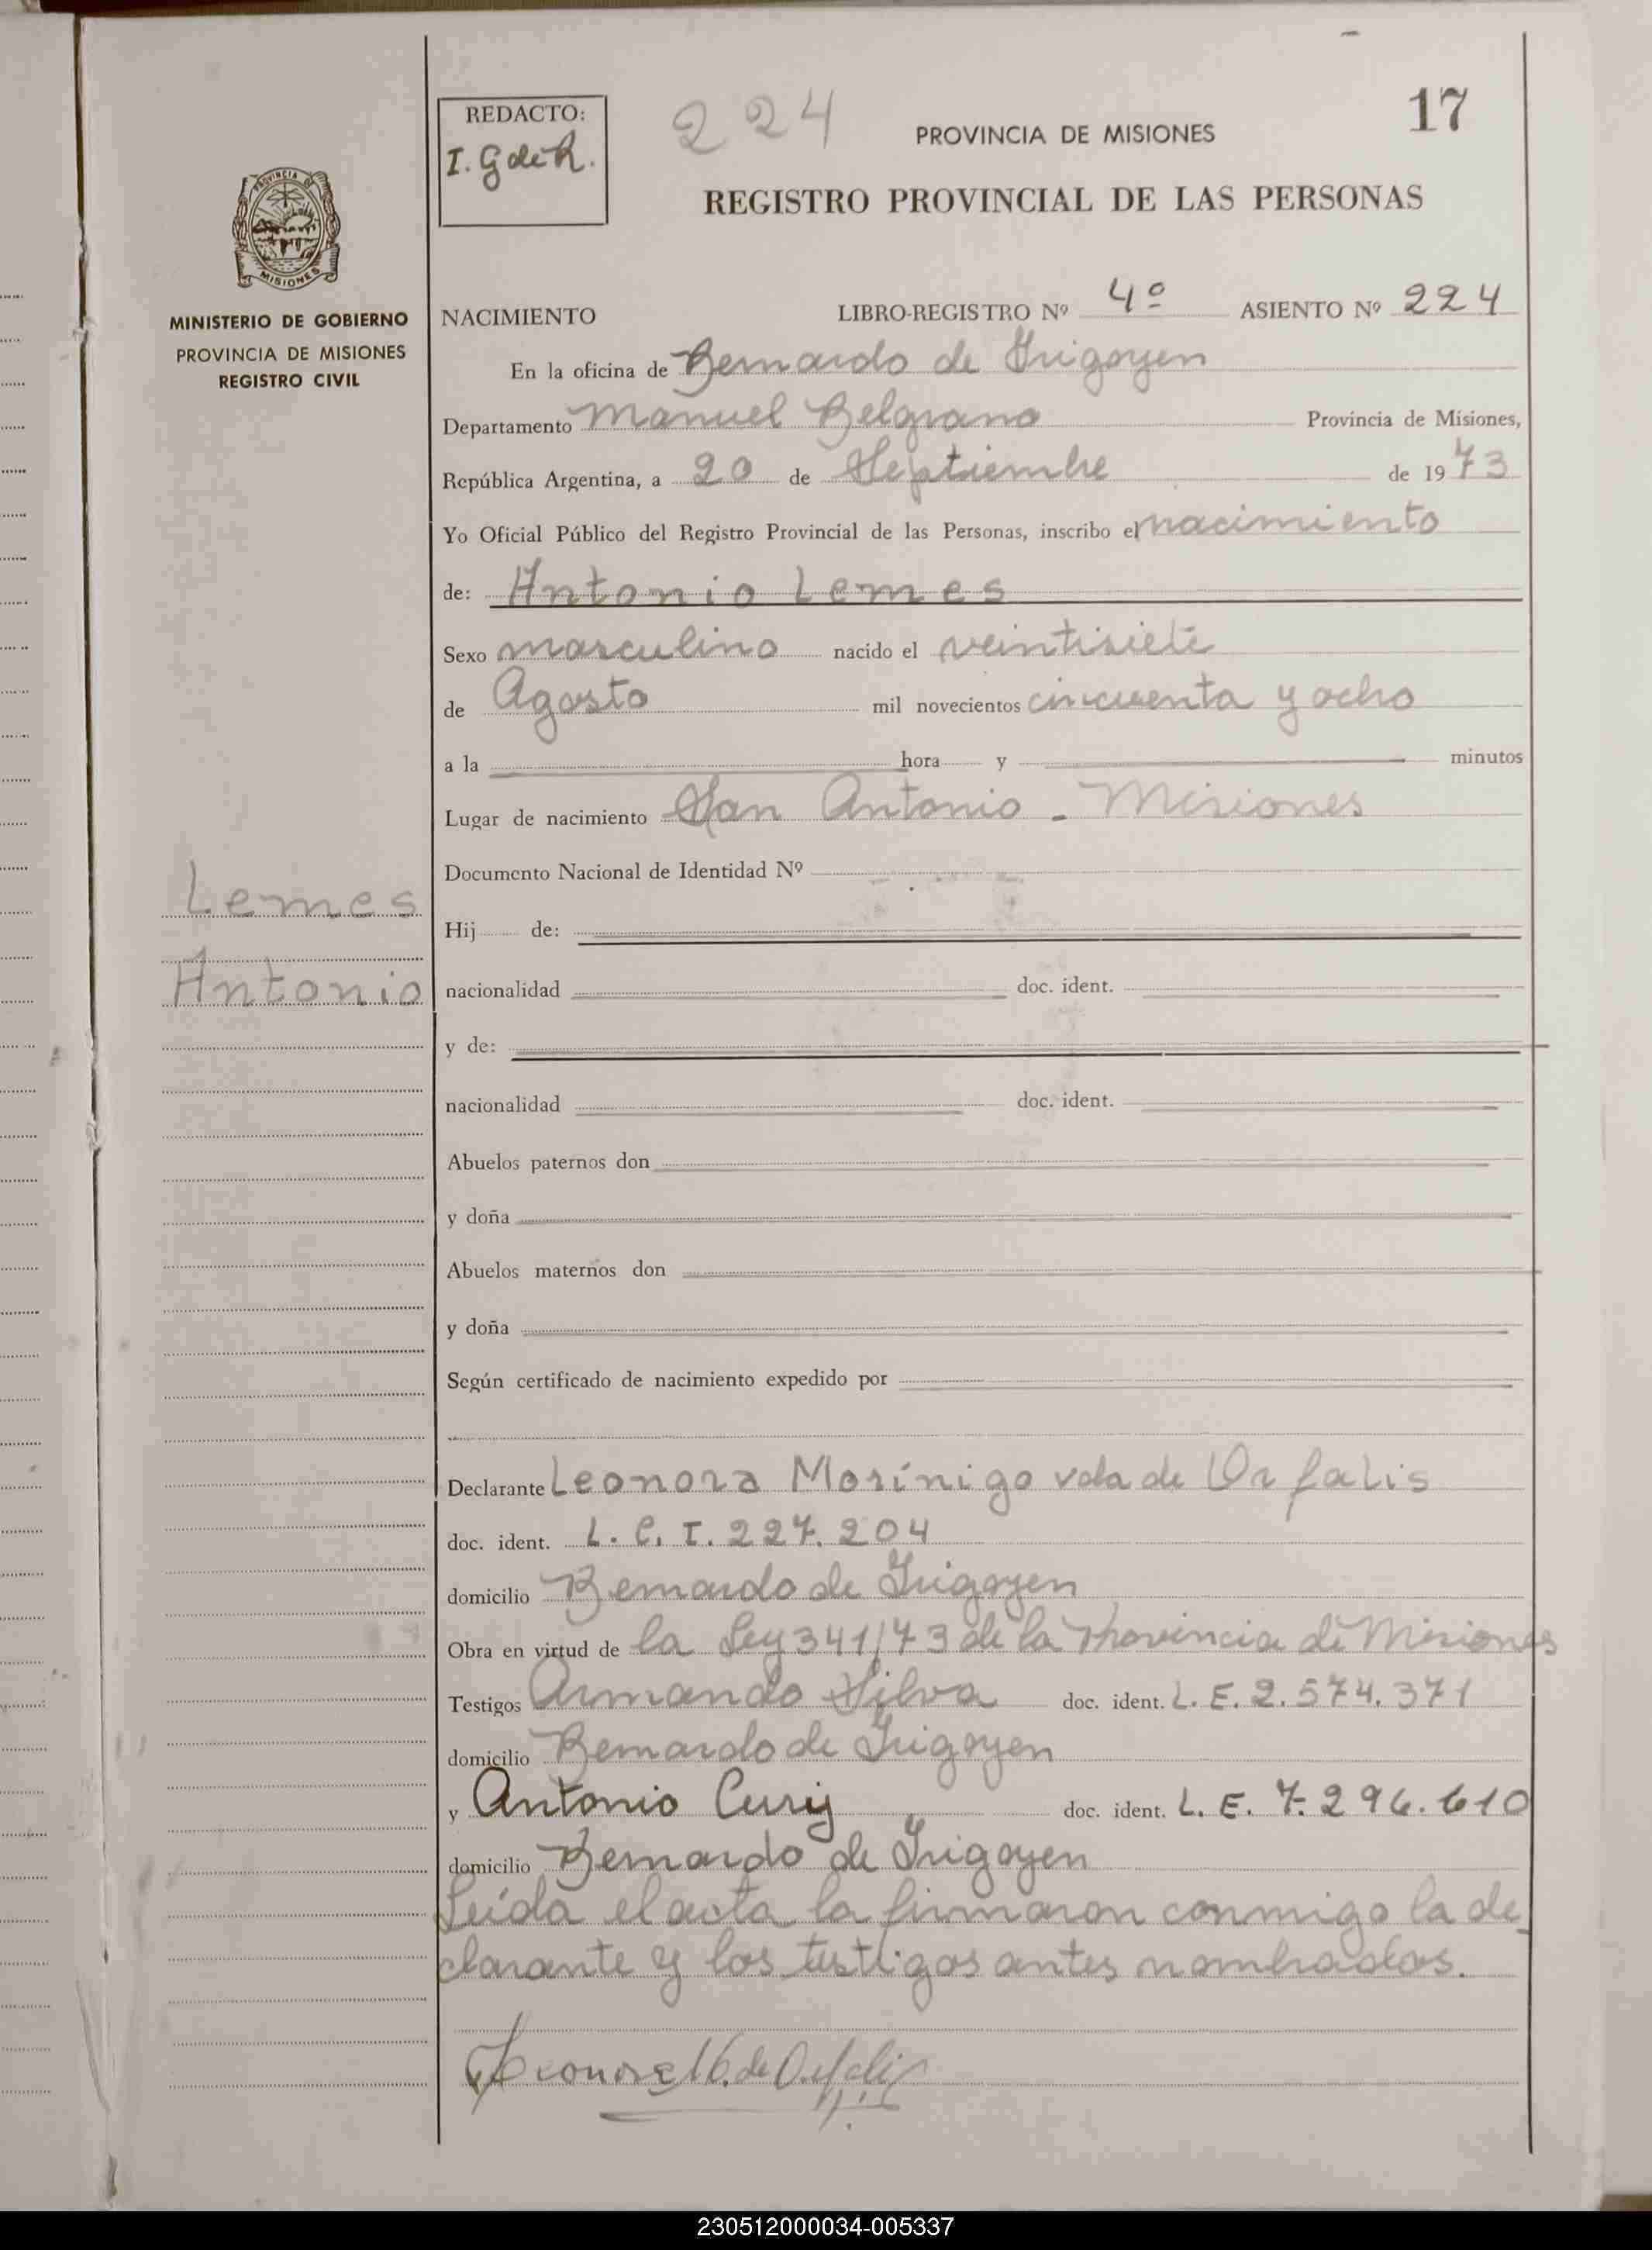 REDACTO:
I. G de R.
224
PROVINCIA DE MISIONES
17
REGISTRO PROVINCIAL DE LAS PERSONAS
PROVINCIA DE
MISIONES
MINISTERIO DE GOBIERNO
PROVINCIA DE MISIONES
REGISTRO CIVIL
NACIMIENTO LIBRO-REGISTRO Nº 4º ASIENTO Nº 224
En la oficina de Bernardo de Irigoyen
Departamento Manuel Belgrano Provincia de Misiones,
República Argentina, a 20 de Septiembre de 1973
Yo Oficial Público del Registro Provincial de las Personas, inscribo el nacimiento
de: Antonio Lemes
Sexo masculino nacido el veintisiete
de Agosto mil novecientos cincuenta y ocho
a la hora y minutos
Lugar de nacimiento San Antonio - Misiones
Documento Nacional de Identidad Nº
Lemes
Antonio
Hij de:
nacionalidad doc. ident.
y de:
nacionalidad doc. ident.
Abuelos paternos don
y doña
Abuelos maternos don
y doña
Según certificado de nacimiento expedido por
Declarante Leonora Morínigo vda de Orfalis
doc. ident. L. C. I. 227.204
domicilio Bernardo de Irigoyen
Obra en virtud de la Ley 341/73 de la Provincia de Misiones
Testigos Armando Silva doc. ident. L. E. 2.574.371
domicilio Bernardo de Irigoyen
y Antonio Cury doc. ident. L. E. 7.296.610
domicilio Bernardo de Irigoyen
Leída el acta la firmaron conmigo la de-
clarante y los testigos antes nombrados.
230512000034-005337